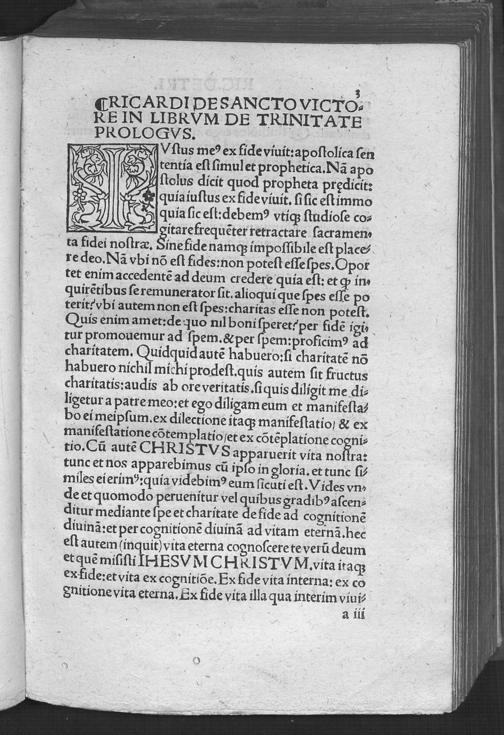 3
¶RICARDI DE SANCTO VICTO-
RE IN LIBRVM DE TRINITATE
PROLOGVS.
IVstus meꝰ ex fide viuit: apostolica sen
tentia est simul et prophetica. Nã apo
stolus dicit quod propheta prędicit:
quia iustus ex fide viuit. si sic est immo
quia sic est: debemꝰ vtiqꝫ studiose co-
gitare frequẽter retractare sacramen-
ta fidei nostræ. Sine fide namqꝫ impossibile est place-
re deo. Nã vbi nõ est fides: non potest esse spes. Opor
tet enim accedentẽ ad deum credere quia est: et qꝫ in-
quirẽtibus se remunerator sit. alioqui que spes esse po
terit? vbi autem non est spes: charitas esse non potest.
Quis enim amet: de quo nil boni speret? per fidẽ igi-
tur promouemur ad spem. & per spem: proficimꝰ ad
charitatem. Quidquid autẽ habuero: si charitatẽ nõ
habuero nichil michi prodest. quis autem sit fructus
charitatis: audis ab ore veritatis. si quis diligit me di-
ligetur a patre meo: et ego diligam eum et manifesta-
bo ei meipsum. ex dilectione itaqꝫ manifestatio/ & ex
manifestatione cõtemplatio/ et ex cõtẽplatione cogni-
tio. Cũ autẽ CHRISTVS apparuerit vita nostra:
tunc et nos apparebimus cũ ipso in gloria. et tunc si-
miles ei erimꝰ: quia videbimꝰ eum sicuti est. Vides vn-
de et quomodo peruenitur vel quibus gradibꝰ ascen-
ditur mediante spe et charitate de fide ad cognitionẽ
diuinã: et per cognitionẽ diuinã ad vitam eternã. hec
est autem (inquit) vita eterna cognoscere te verũ deum
et quẽ misisti IHESVM CHRISTVM. vita itaqꝫ
ex fide: et vita ex cognitiõe. Ex fide vita interna: ex co
gnitione vita eterna. Ex fide vita illa qua interim viui-
a iii